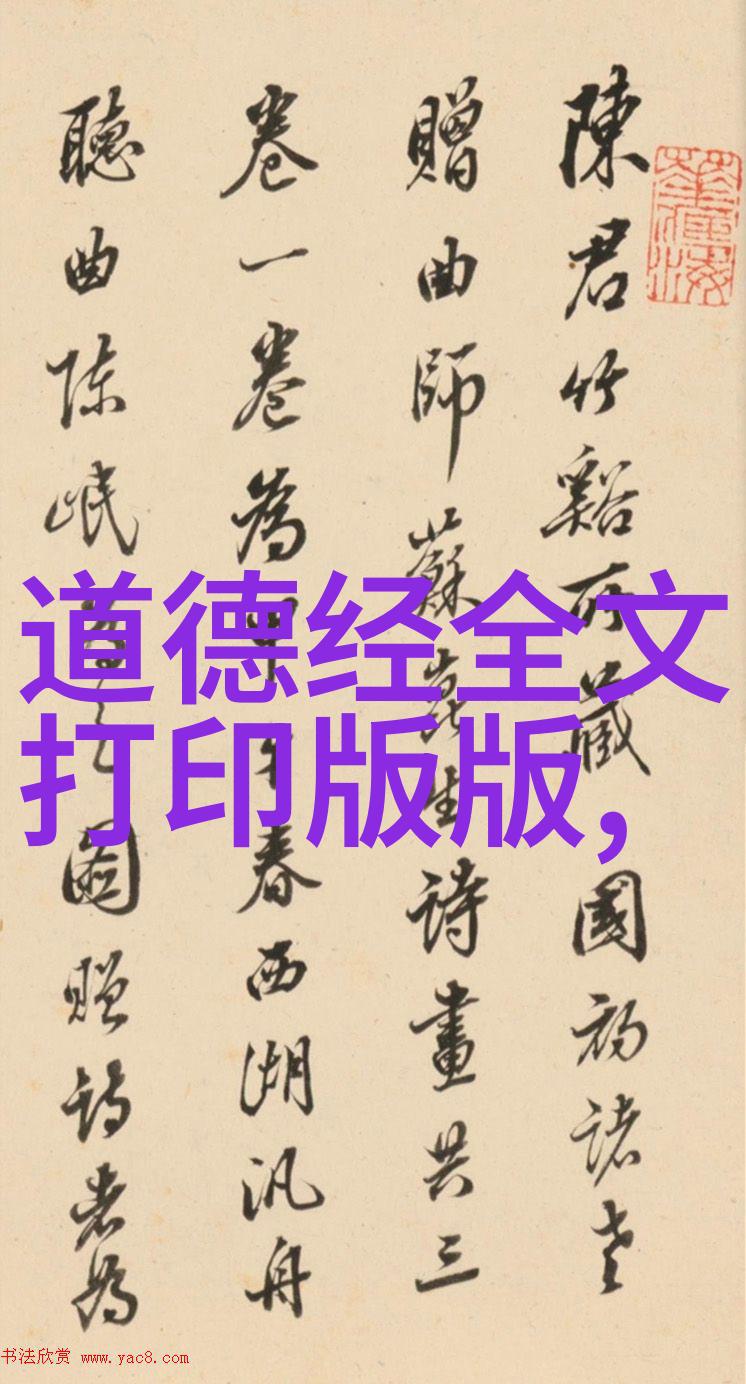 陳君竹谿所藏國初諸老
贈曲師蘇崑生詩畫共三
卷一卷為午春西湖汎舟
聽曲陳岷之圖贈詩者為
道德经全文
打印版版,
书法欣赏 www.yac8.com